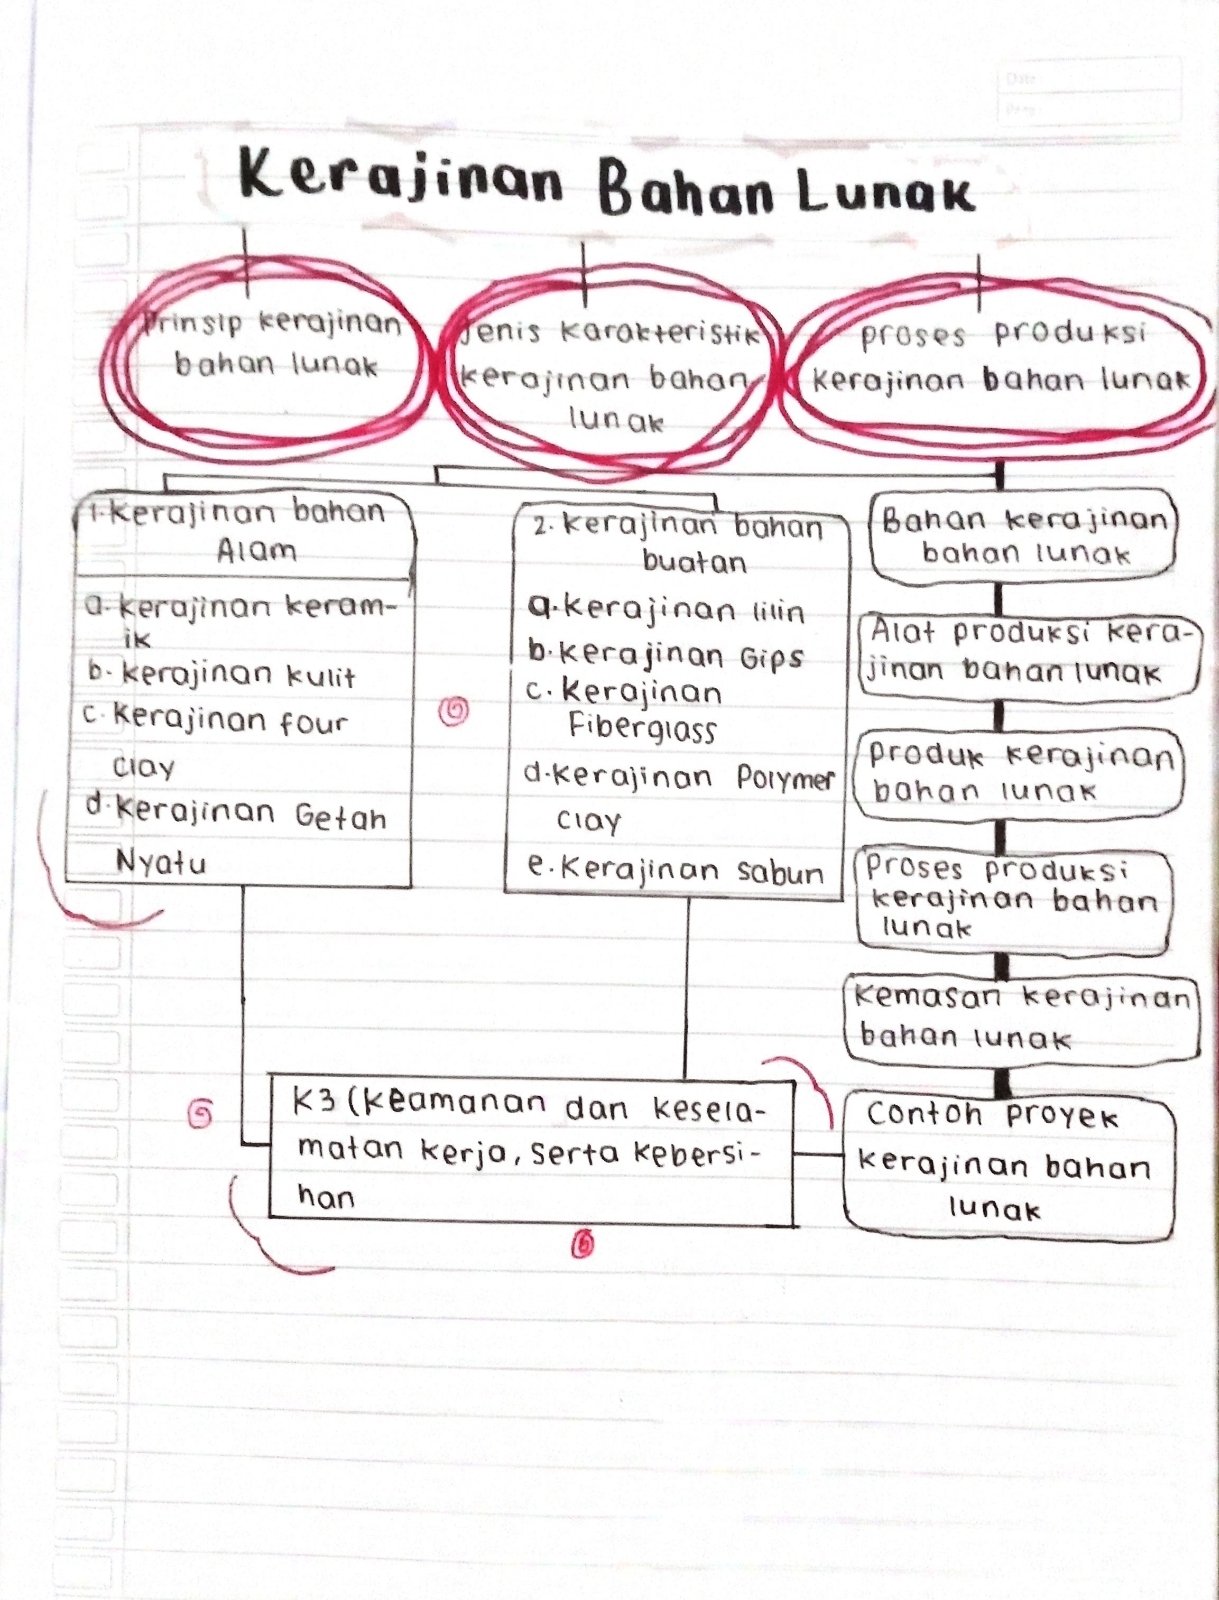 Date
Kerajinan Bahan Lunak
Prinsip kerajinan
bahan lunak
Jenis Karakteristik
kerajinan bahan
lunak
proses produksi
kerajinan bahan lunak
1. kerajinan bahan
Alam
a. kerajinan keram-
ik
b. kerajinan kulit
c. Kerajinan four
clay
d. kerajinan Getah
Nyatu
2. kerajinan bahan
buatan
a. kerajinan lilin
b. kerajinan Gips
c. Kerajinan
Fiberglass
d. kerajinan Polymer
clay
e. Kerajinan sabun
Bahan kerajinan
bahan lunak
Alat produksi kera-
jinan bahan lunak
produk kerajinan
bahan lunak
Proses produksi
kerajinan bahan
lunak
Kemasan kerajinan
bahan lunak
Contoh proyek
kerajinan bahan
lunak
K3 (keamanan dan kesela-
matan kerja, serta kebersi-
han